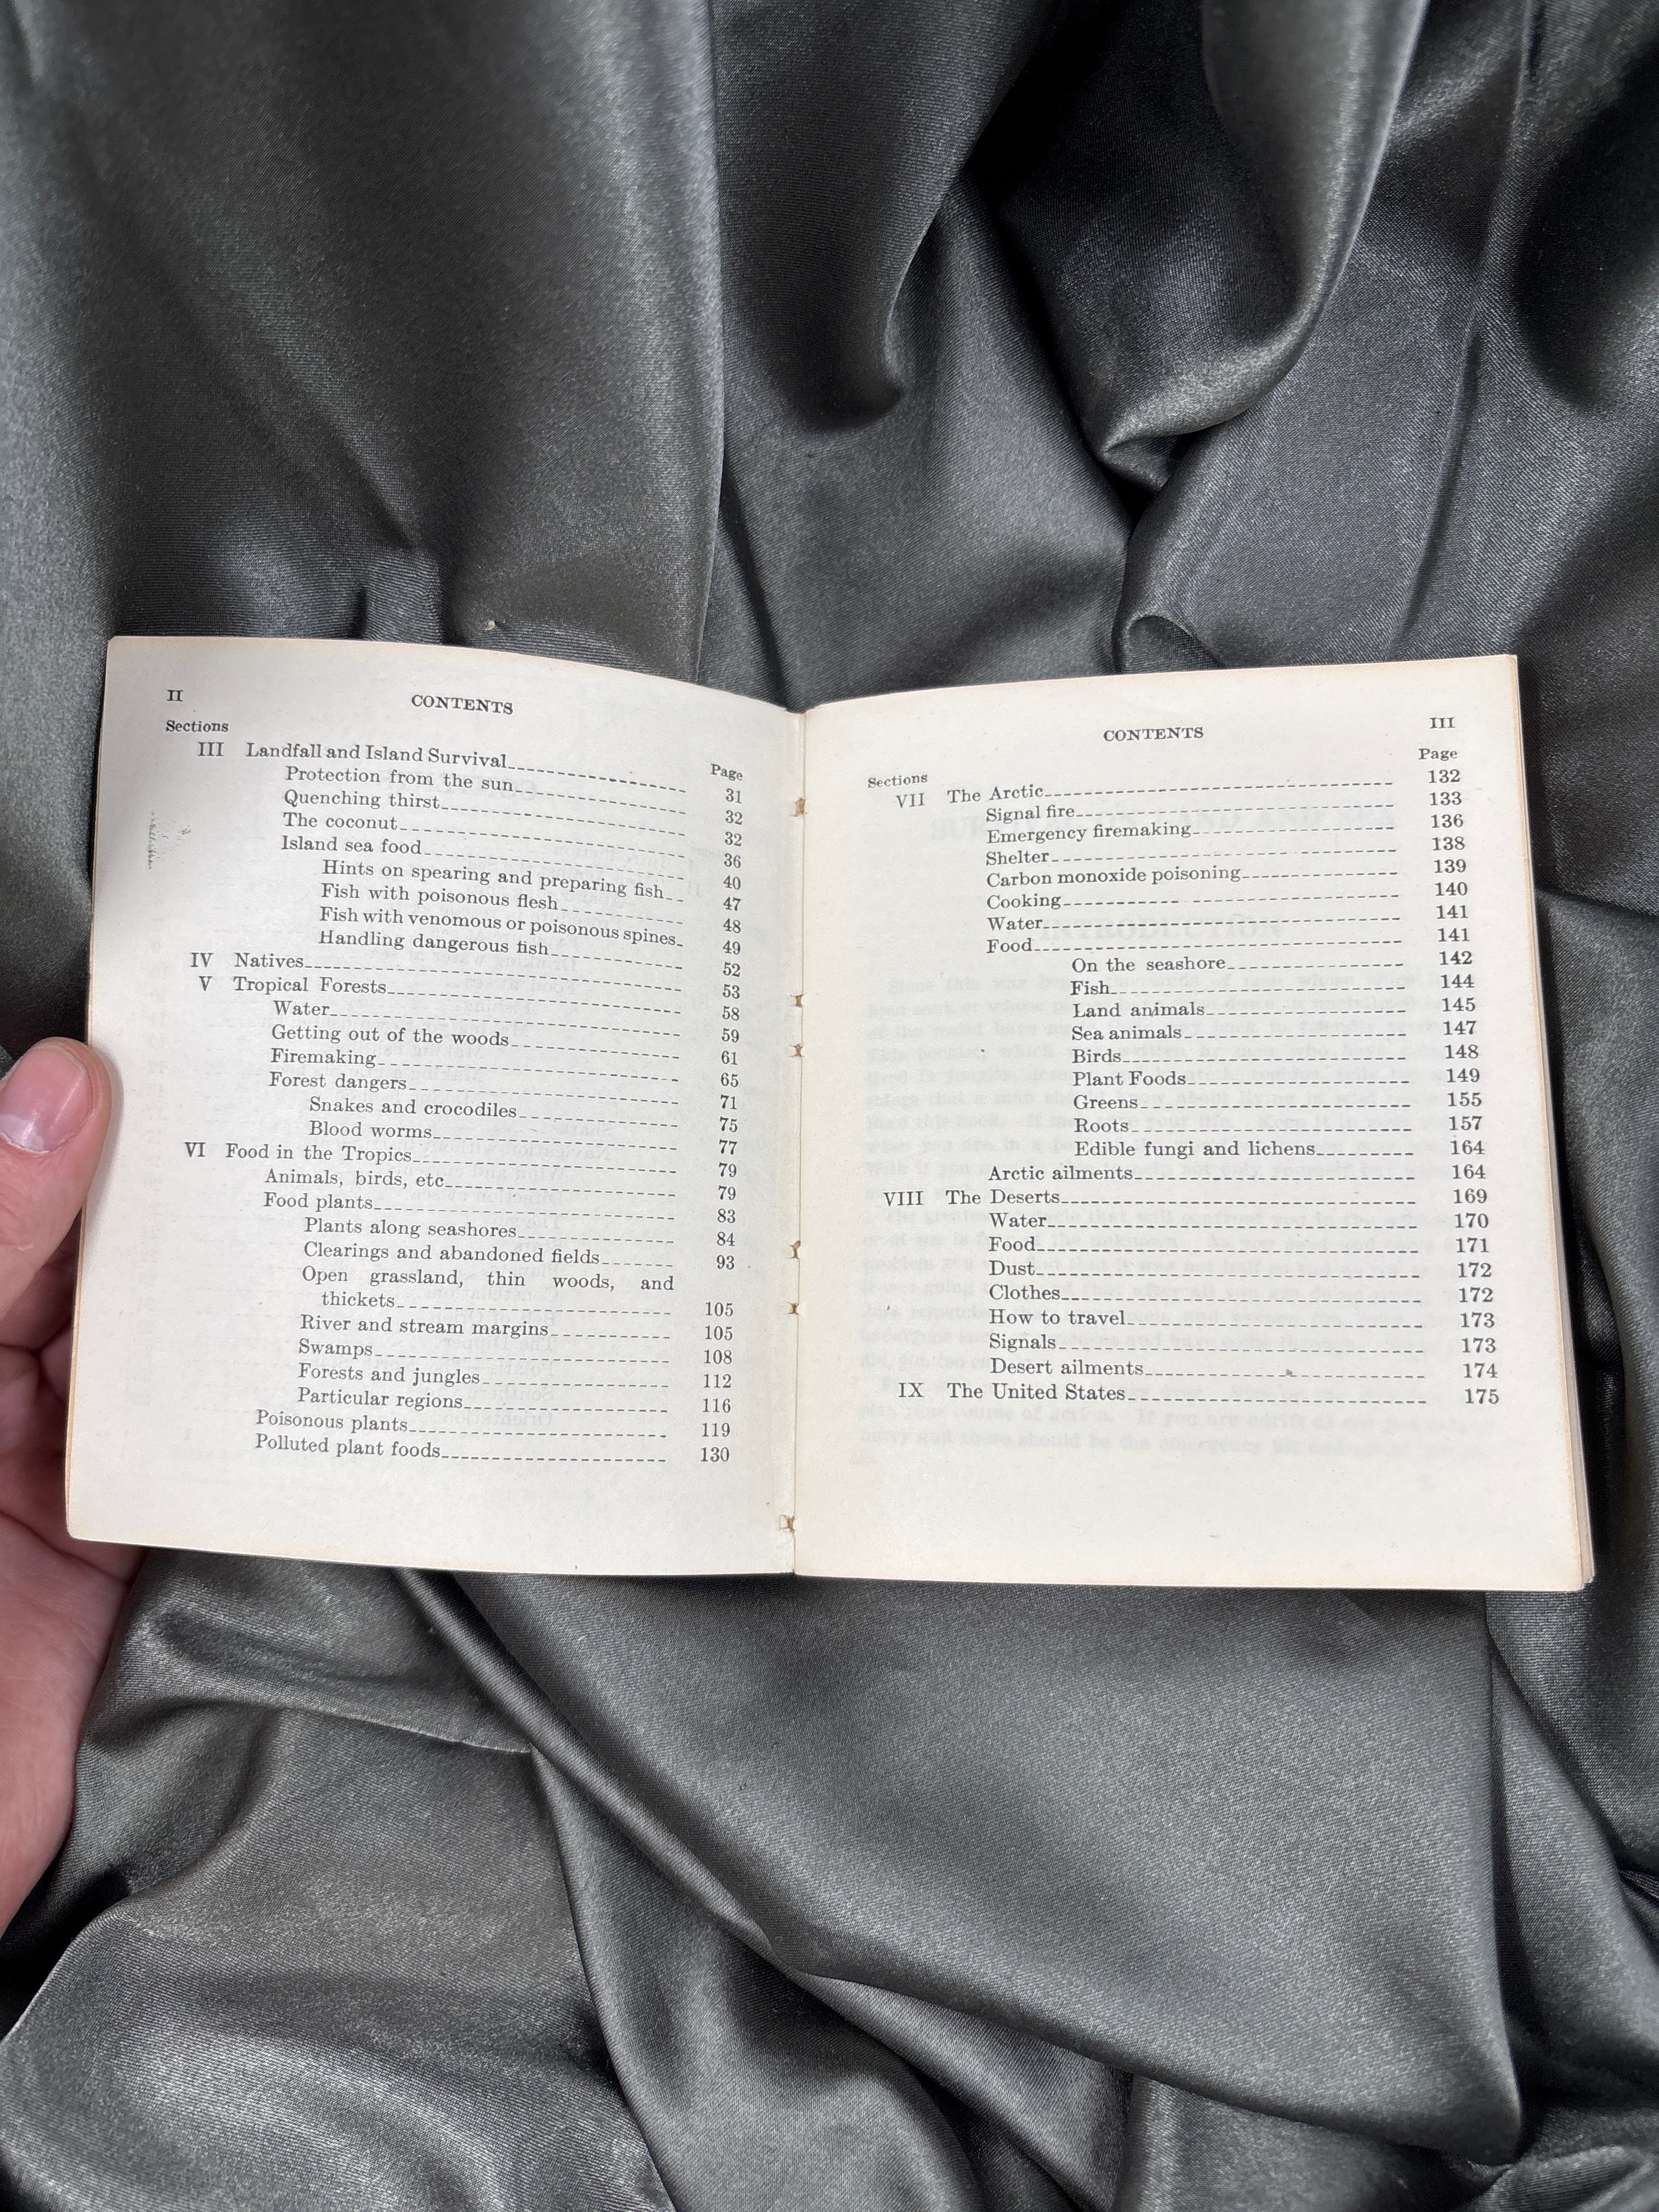 II
CONTENTS
Sections
Page
III Landfall and Island Survival 31
Protection from the sun 32
Quenching thirst 32
The coconut 36
Island sea food 40
Hints on spearing and preparing fish 47
Fish with poisonous flesh 48
Fish with venomous or poisonous spines 49
Handling dangerous fish 52
IV Natives 53
V Tropical Forests 58
Water 59
Getting out of the woods 61
Firemaking 65
Forest dangers 71
Snakes and crocodiles 75
Blood worms 77
VI Food in the Tropics 79
Animals, birds, etc 79
Food plants 83
Plants along seashores 84
Clearings and abandoned fields 93
Open grassland, thin woods, and
thickets 105
River and stream margins 105
Swamps 108
Forests and jungles 112
Particular regions 116
Poisonous plants 119
Polluted plant foods 130
CONTENTS
III
Sections
Page
VII The Arctic 132
Signal fire 133
Emergency firemaking 136
Shelter 138
Carbon monoxide poisoning 139
Cooking 140
Water 141
Food 141
On the seashore 142
Fish 144
Land animals 145
Sea animals 147
Birds 148
Plant Foods 149
Greens 155
Roots 157
Edible fungi and lichens 164
Arctic ailments 164
VIII The Deserts 169
Water 170
Food 171
Dust 172
Clothes 172
How to travel 173
Signals 173
Desert ailments 174
IX The United States 175